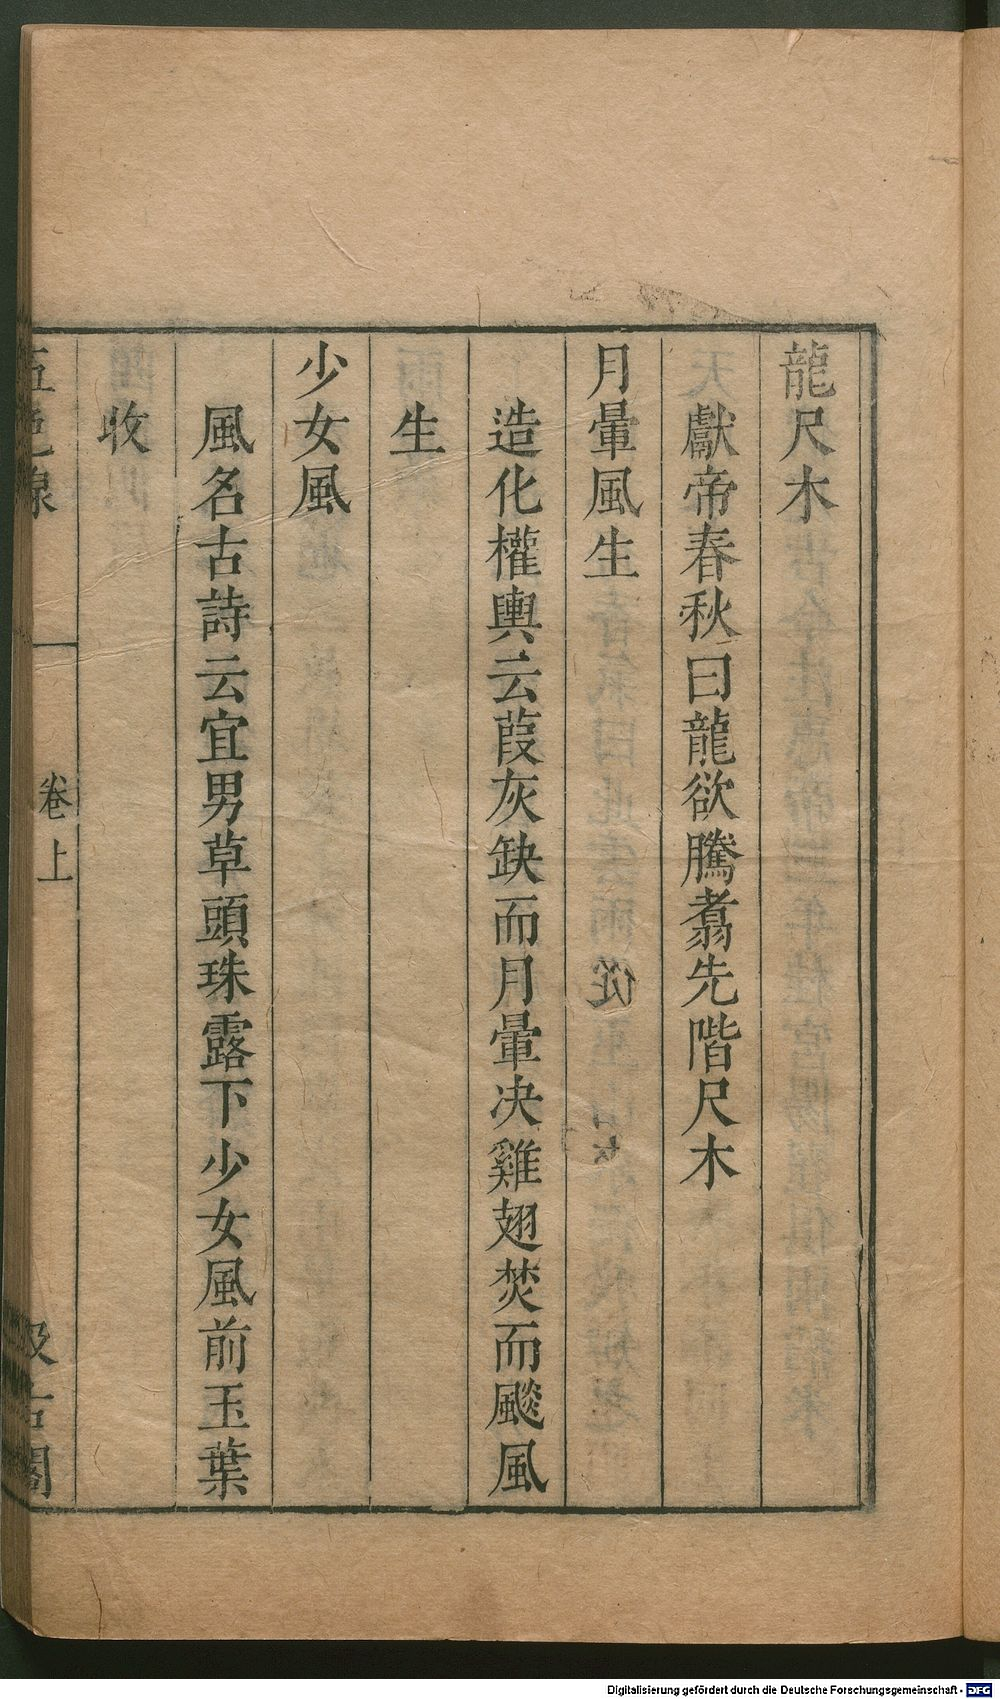 龍尺木
獻帝春秋曰龍欲騰翥先階尺木
月暈風生
造化權輿云葭灰缺而月暈决雞翅焚而颷風
生
少女風
風名古詩云宜男草頭珠露下少女風前玉葉
收
五色線 卷上 汲古閣
Digitalisierung gefördert durch die Deutsche Forschungsgemeinschaft - DFG